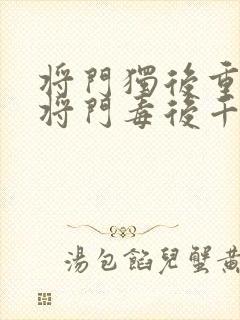 將門獨後重
將門毒後千
湯包餡兒蟹黃